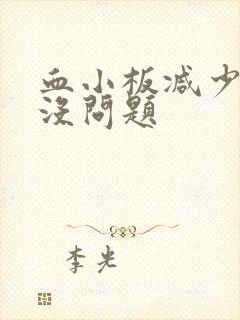 血小板减少
没問題
李光